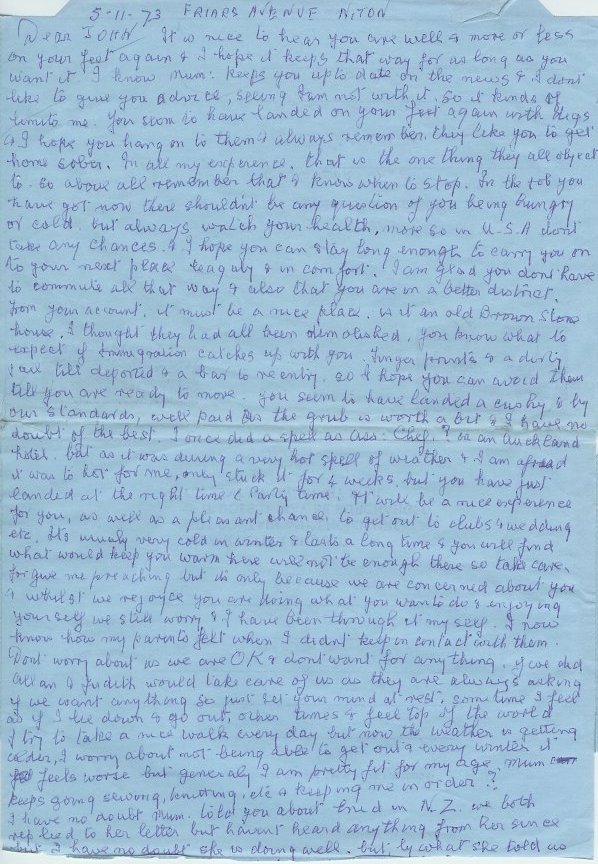 5-11-73 FRIARS AVENUE AITON
Dear JOHN It is nice to hear you are well & more or less
on your feet again & I hope it keeps that way for as long as you
want it. I know Mum: keeps you up to date on the news & I don't
like to give you advice, seeing I am not with it, so it kinds of
limits me. You seem to have landed on your feet again with digs
& I hope you hang on to them & always remember, they like you to get
home sober. In all my experience, that is the one thing they all object
to - so above all remember that & know when to stop. In the job you
have got now there shouldn't be any question of you being hungry
or cold. but always watch your health, more so in U.S.A dont
take any chances. & I hope you can stay long enough to carry you on
to your next place legaly & in comfort. I am glad you dont have
to commute all that way & also that you are in a better district.
from your account, it must be a nice place. is it an old Brown Stone
house. I thought they had all been demolished. you know what to
expect if Immigration catches up with you. Finger prints & a dirty
jail till deported & a bar to reentry. so I hope you can avoid them
till you are ready to move. you seem to have landed a cushy & by
our standards, well paid Job the grub is worth a bit & I have no
doubt of the best. I once did a spell as Ass: Chef. ? in an Auckland
hotel but as it was during a very hot spell of weather & I am afraid
it was to hot for me, only stuck it for 4 weeks. but you have just
landed at the right time & Party time. It will be a nice experience
for you, as well as a pleasant chance to get out to clubs & wedding
etc. It's usualy very cold in winter & lasts a long time & you will find
what would keep you warm here will not be enough there so take care.
forgive me preaching but its only because we are concerned about you
& whilst we rejoyce you are doing what you want to do & enjoying
yourself we still worry & I have been through it my self. I now
know how my parents felt when I didnt keep in contact with them.
Dont worry about us we are OK & dont want for anything. if we did
Allan & Judith would take care of us as they are always asking
if we want anything so just set your mind at rest. some time I feel
as if I lie down & go out, other times I feel top of the world
I try to take a nice walk every day but now the weather is getting
colder, I worry about not being able to get out & every winter it
feels worse but generaly I am pretty fit for my age. Mum
keeps going sewing, knitting, etc & keeping me in order?
I have no doubt Mum. told you about Enid in N.Z. we both
replied to her letter but havent heard anything from her since
but I have no doubt she is doing well. but, by what she told us